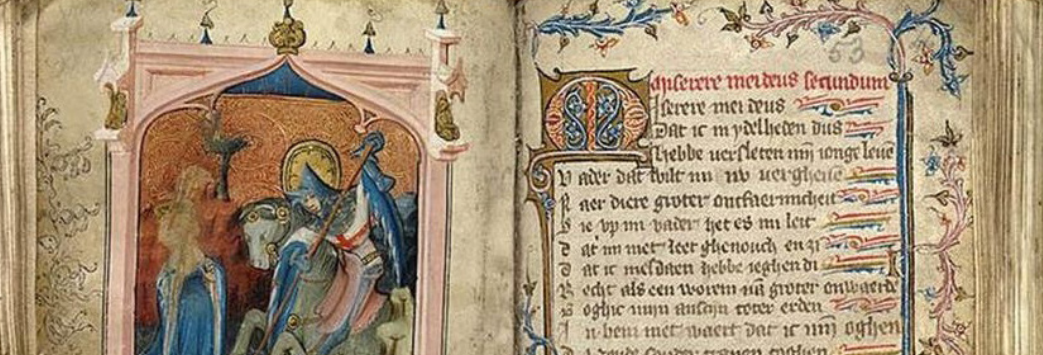 53
Miserere mei deus secundum
Miserere mei deus
Dat ic in ydelheden dus
Hebbe versleten mijn ionge leven
Vader dat wilt mi nu vergheven
Naer diere groter ontfaermicheit
Sie up mi vader het es mi leit
Dat mi niet leet ghenouch en zi
Dat ic mesdaen hebbe ieghen di
Recht als een worem na groter onwaerde
Boghic mijn anscijn toter erden
In bem niet waert dat ic mijn oghen